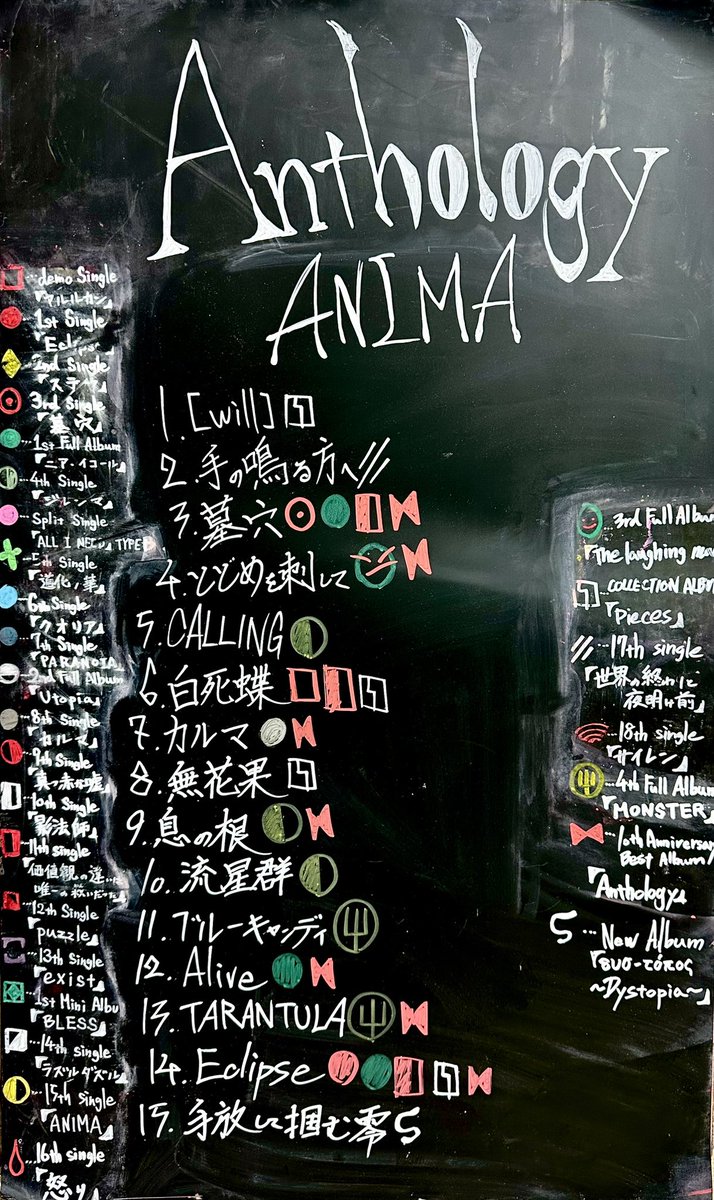 Anthology
ANIMA
1. [will]
2. 手の鳴る方へ
3. 墓穴
4. とどめを刺して
5. CALLING
6. 白死蝶
7. カルマ
8. 無花果
9. 息の根
10. 流星群
11. ブルーキャンディ
12. Alive
13. TARANTULA
14. Eclipse
15. 手放して掴む零
…demo Single
『アルルカン』
…1st Single
『Eclipse』
…2nd Single
『ステラ』
…3rd Single
『墓穴』
…1st Full Album
『ニア・イコール』
…4th Single
『ジレンマ』
…Split Single
『ALL I NEED』 TYPE
…5th Single
『進化ノ華』
…6th Single
『クオリア』
…7th Single
『PARANOIA』
…2nd Full Album
『Utopia』
…8th Single
『カルマ』
…9th Single
『真っ赤な嘘』
…10th Single
『影法師』
…11th Single
『価値観の違いは
唯一の救いだった』
…12th Single
『puzzle』
…13th Single
『exist』
…1st Mini Albu
『BLESS』
…14th single
『ラズルダズル』
…15th single
『ANIMA』
…16th single
『怒り』
…3rd Full Album
『The laughing man
…COLLECTION ALBUM
『Pieces』
…17th single
『世界の終わりと
夜明け前』
…18th single
『サイレン』
…4th Full Album
『MONSTER』
…10th Anniversary
Best Album
『Anthology』
…New Album
『δυσ-τόπος
~Dystopia~』